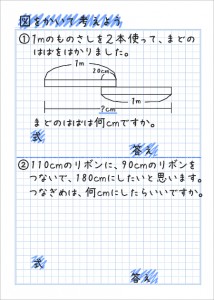 図をかいて考えよう
①1mのものさしを2本使って、まどの
はばをはかりました。
1m
20cm
1m
?cm
まどのはばは何cmですか。
式
答え
②110cmのリボンに、90cmのリボンを
つないで、180cmにしたいと思います。
つなぎめは、何cmにしたらいいですか。
式
答え